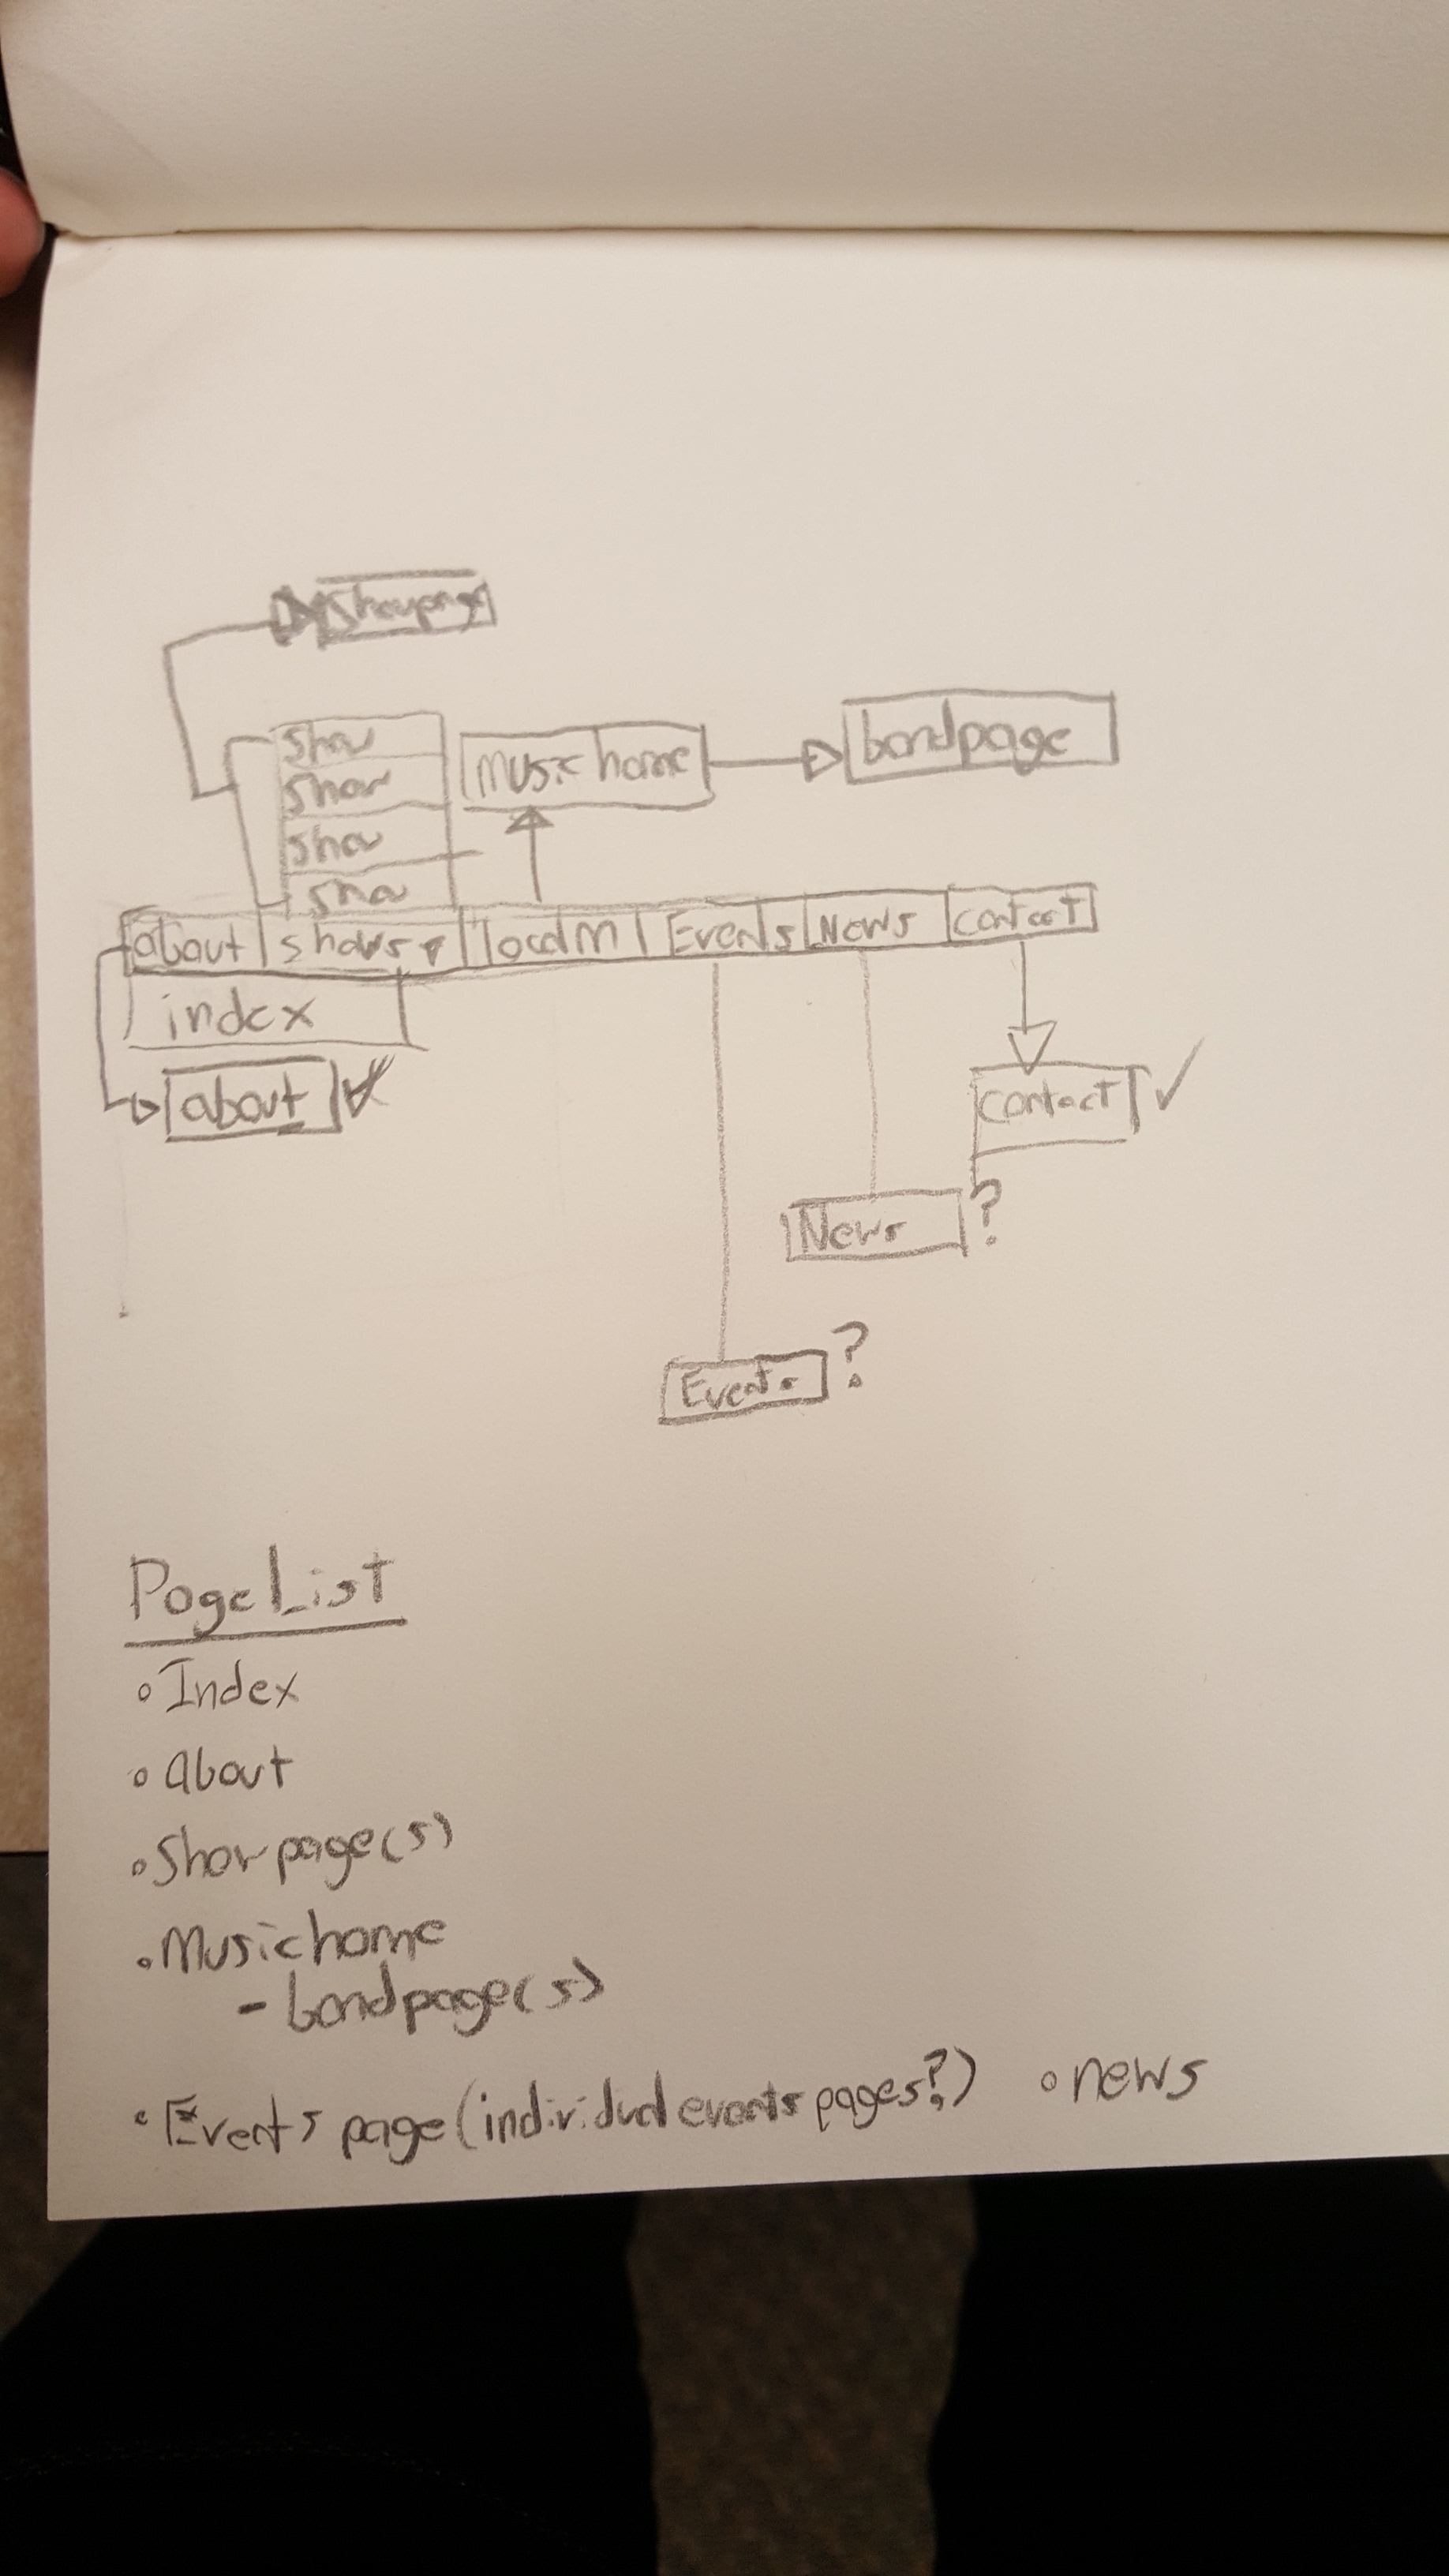 showpage
show
show
show
show
music home
bandpage
about shows ▾ local m Events News contact
index
about ✓
contact ✓
News ?
Events ?
Page List
◦ Index
◦ about
◦ Show page(s)
◦ Music home
- bandpage(s)
◦ Events page (individual events pages?) ◦ news